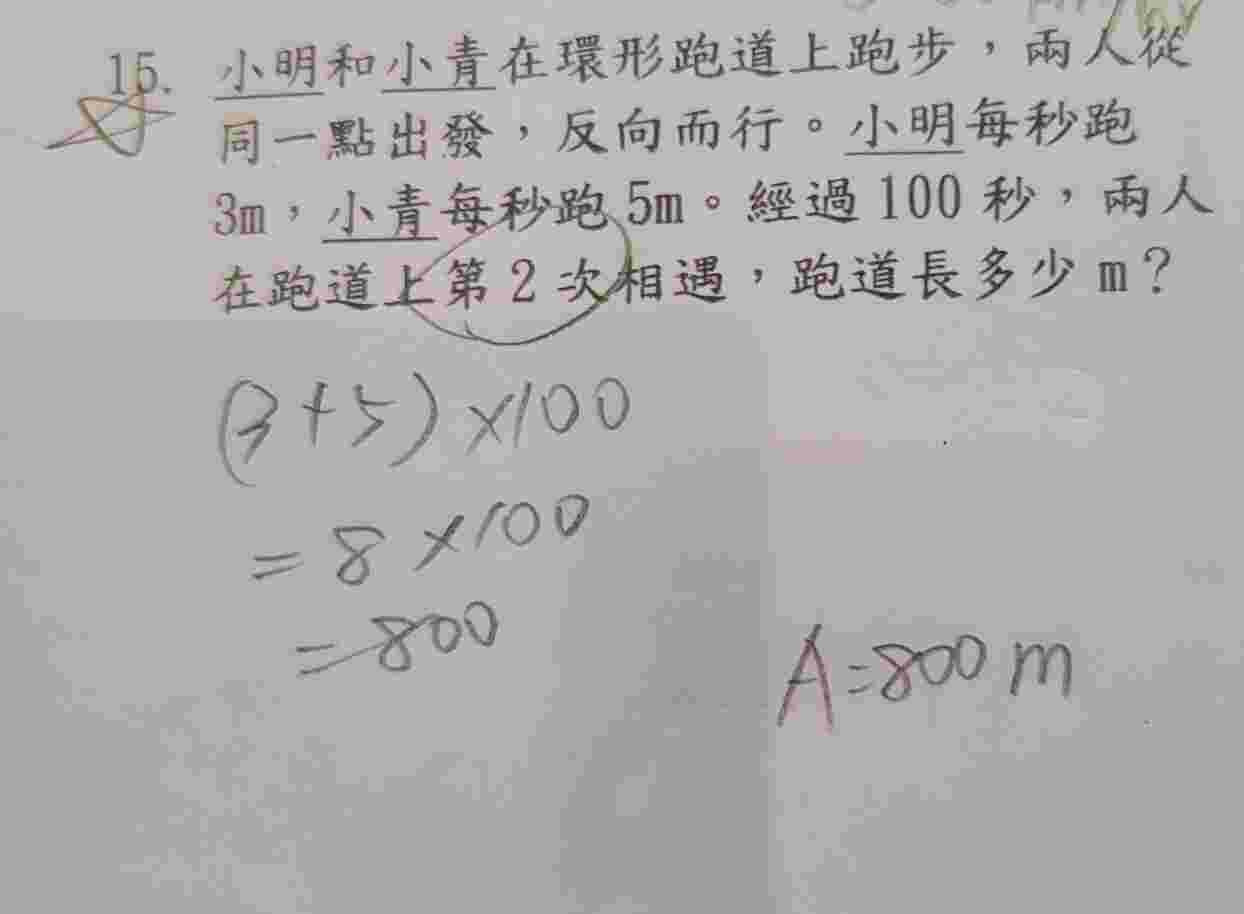 15. 小明和小青在環形跑道上跑步，兩人從
同一點出發，反向而行。小明每秒跑
3m，小青每秒跑5m。經過100秒，兩人
在跑道上第2次相遇，跑道長多少m？
(3+5)×100
=8×100
=800
A=800m